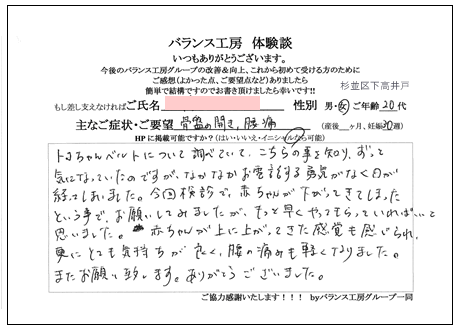 バランス工房 体験談
いつもありがとうございます。
今後のバランス工房グループの改善&向上、これから初めて受ける方のために
ご感想(よかった点、ご要望点など)ありましたら
簡単で結構ですのでお書き頂けましたら幸いです!!
杉並区下高井戸
もし差し支えなければご氏名 性別 男・女 ご年齢20代
主なご症状・ご要望 骨盤の開き、腰痛 (産後 ヶ月、妊娠30週)
HPに掲載可能ですか?(はい・いいえ・イニシャルなら可能)
トコちゃんベルトについて調べていて、こちらの事を知り、ずっと
気になっていたのですが、なかなかお電話する勇気がなく日が
経ってしまいました。今回検診で、赤ちゃんが下がってきてしまった
という事で、お願いしてみましたが、もっと早くやってもらっていればいいと
思いました。赤ちゃんが上に上がってきた感覚も感じられ、
更にとても気持ちが良く、腰の痛みも軽くなりました。
またお願い致します。ありがとうございました。
ご協力感謝いたします!!! byバランス工房グループ一同